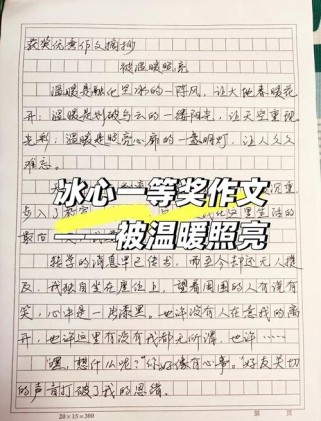 获奖优秀作文摘抄
被温暖照亮
温暖是融化坚冰的一阵风，让大地春暖花
开；温暖是划破乌云的一缕阳光，让天空重现
光彩；温暖是照亮心扉的一盏明灯，让人久久
难忘。
冰心一等奖作文
——被温暖照亮
转学的消息早已传出，而至今却还无人提
及，我独自坐在座位上，望着周围的人有说有
笑，心中是一片漆黑。也许没有人在意我的离
开，也许这里有没有我都无所谓，也许……
“嘿，想什么呢？”“你好像有心事。”好友关切
的声音打破了我的思绪。
20×15=300
第 页